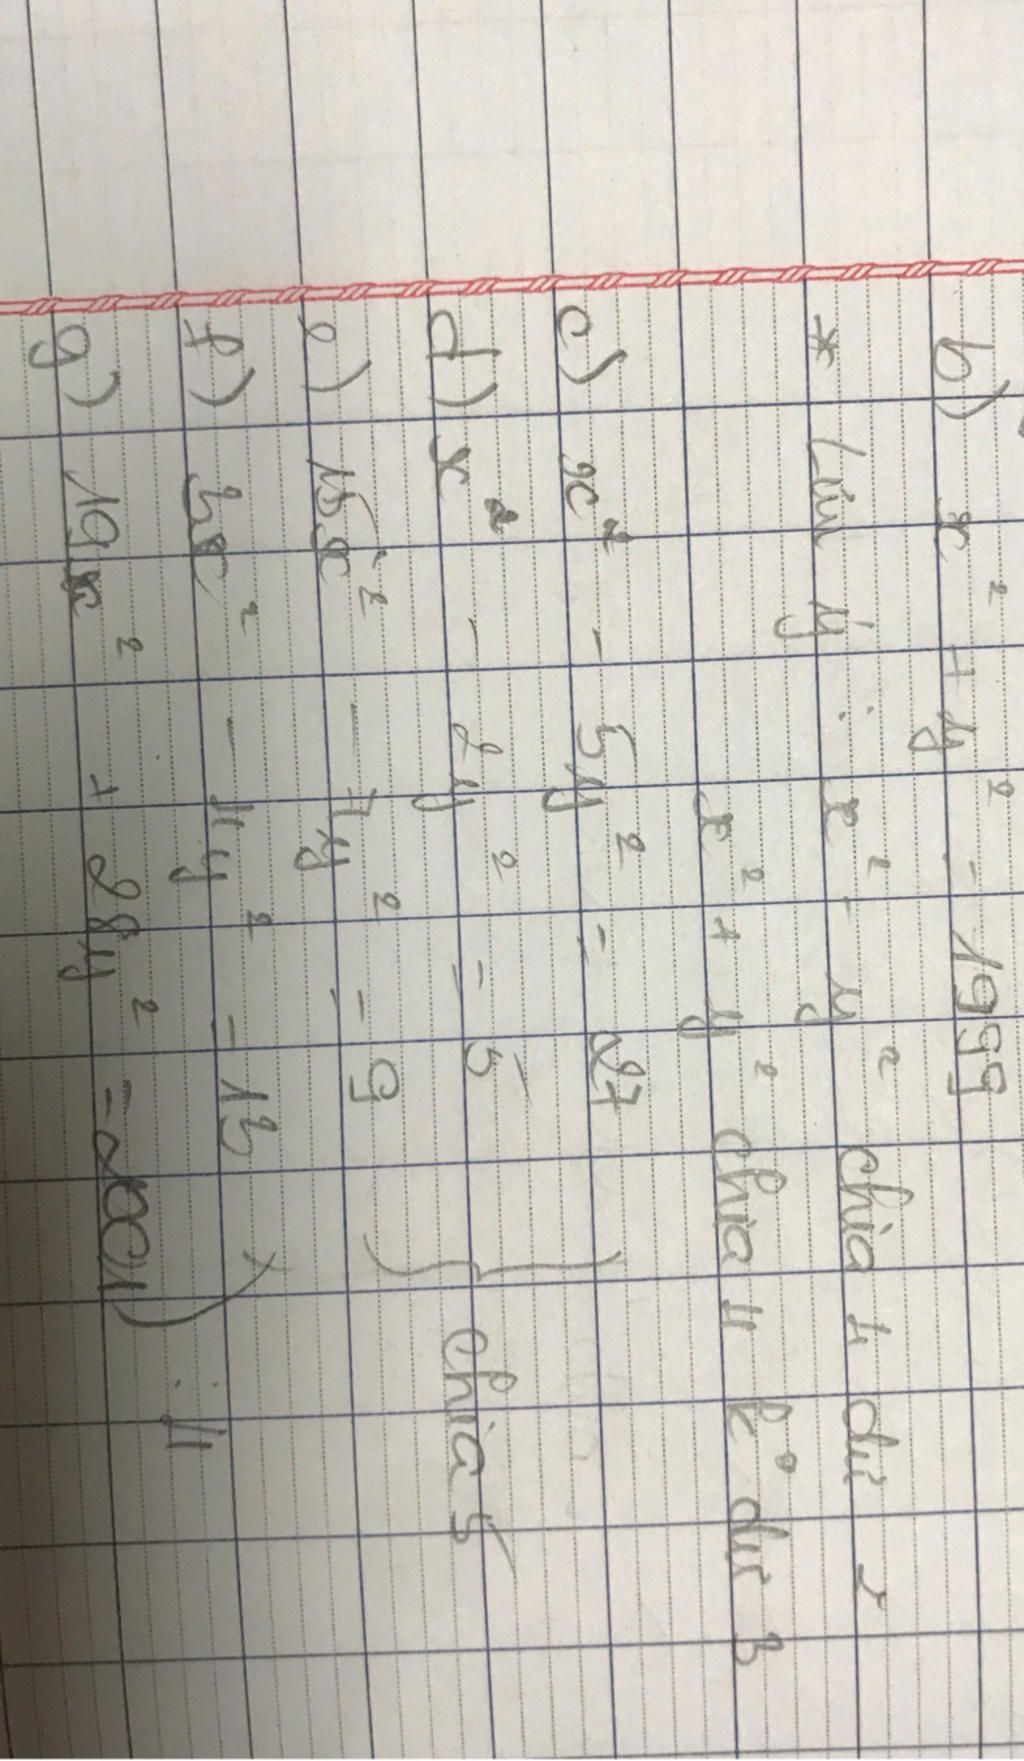 b) x² + y² = 1999
* Lưu ý : x² - y² chia 4 dư 2
x² + y² chia 4 k° dư 3
c) x² - 5y² = 27
d) x² - 2y² = 5
e) 15x² - 7y² = 9
chia 5
f) 3x² - 4y² = 13
g) 19x² + 28y² = 2001
⋮ 4